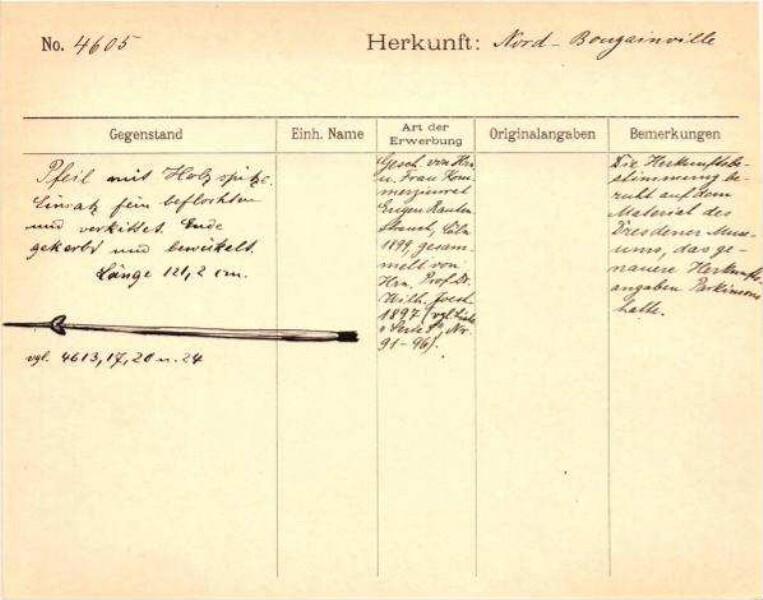 No. 4605
Herkunft: Nord-Bougainville
Gegenstand
Einh. Name
Art der
Erwerbung
Originalangaben
Bemerkungen
Pfeil mit Holzspitze.
Einsatz fein beflochten
und verkittet. Ende
gekerbt und bewickelt.
Länge 121,2 cm.
vgl. 4613, 17, 20 u. 24
Gesch. von Hrn.
u. Frau Kom-
merzienrat
Eugen Rauten-
strauch, Cöln
1899, gesam-
melt von
Hrn. Prof. Dr.
Wilh. Joest
1897 (vgl. Liste
"Serie S", Nr.
91-96).
Die Herkunftsbe-
stimmung be-
ruht auf dem
Material des
Dresdener Muse-
ums, das ge-
nauere Herkunfts-
angaben Parkinsons
hatte.